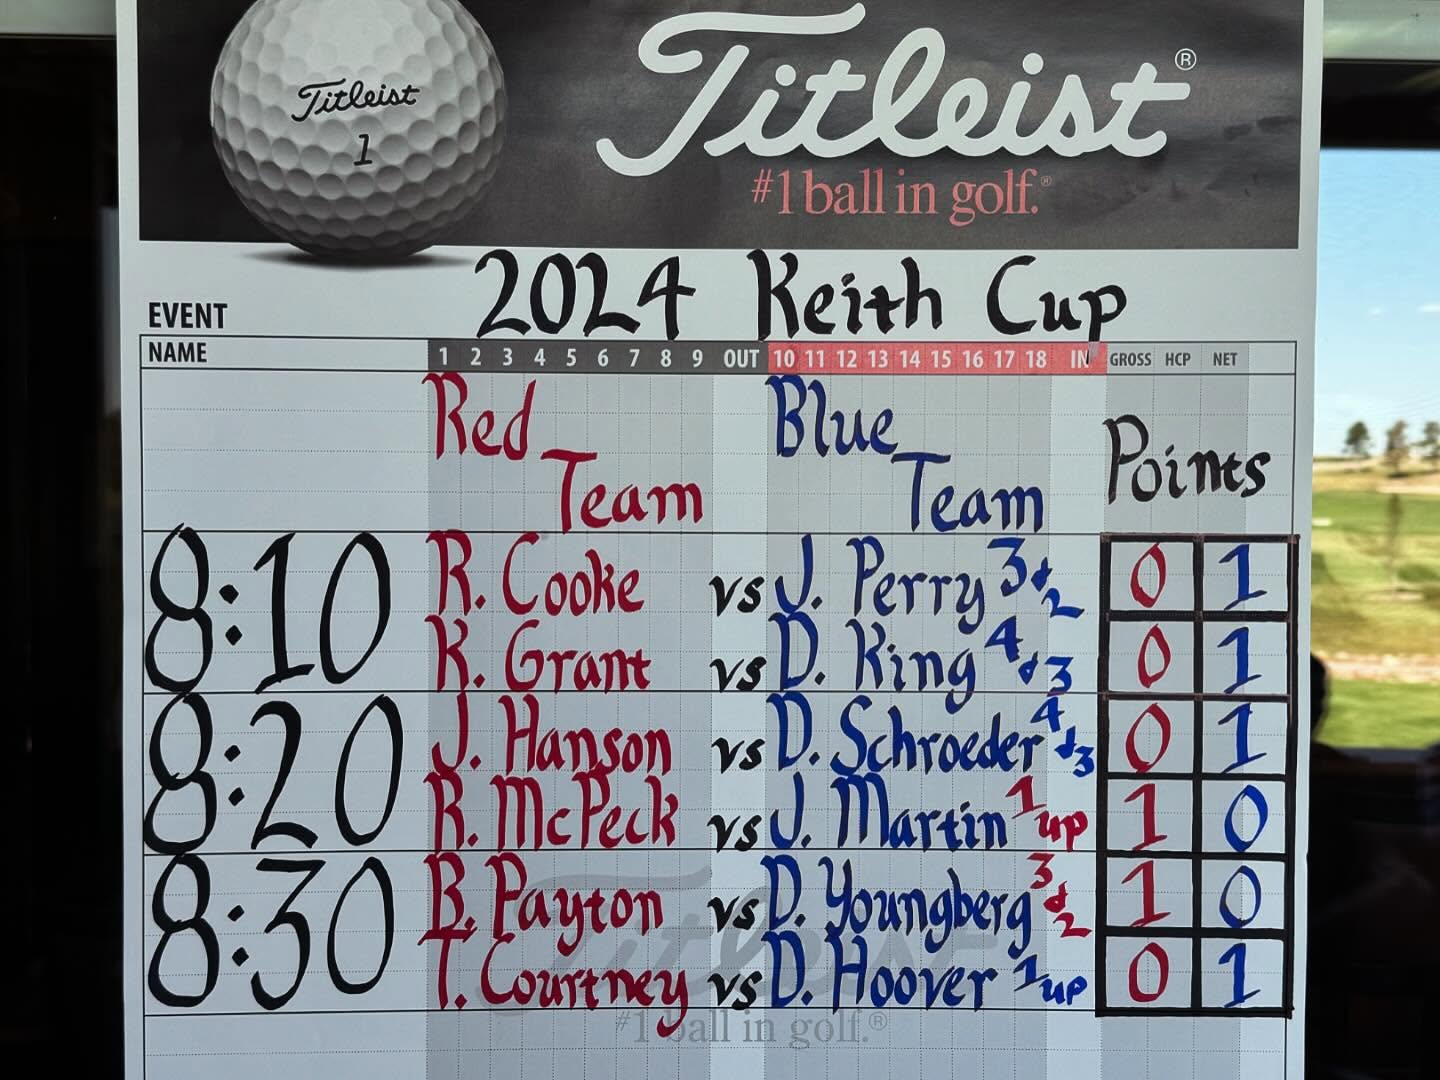 Titleist
1
Titleist®
#1 ball in golf.®
EVENT 2024 Keith Cup
NAME 1 2 3 4 5 6 7 8 9 OUT 10 11 12 13 14 15 16 17 18 IN GROSS HCP NET
Red Team Blue Team Points
8:10 R. Cooke vs J. Perry 3 & 2 0 1
K. Grant vs D. King 4 & 3 0 1
8:20 J. Hanson vs D. Schroeder 4 & 3 0 1
R. McPeck vs J. Martin 1 up 1 0
8:30 B. Payton vs D. Youngberg 3 & 2 1 0
T. Courtney vs D. Hoover 1 up 0 1
Titleist
#1 ball in golf.®